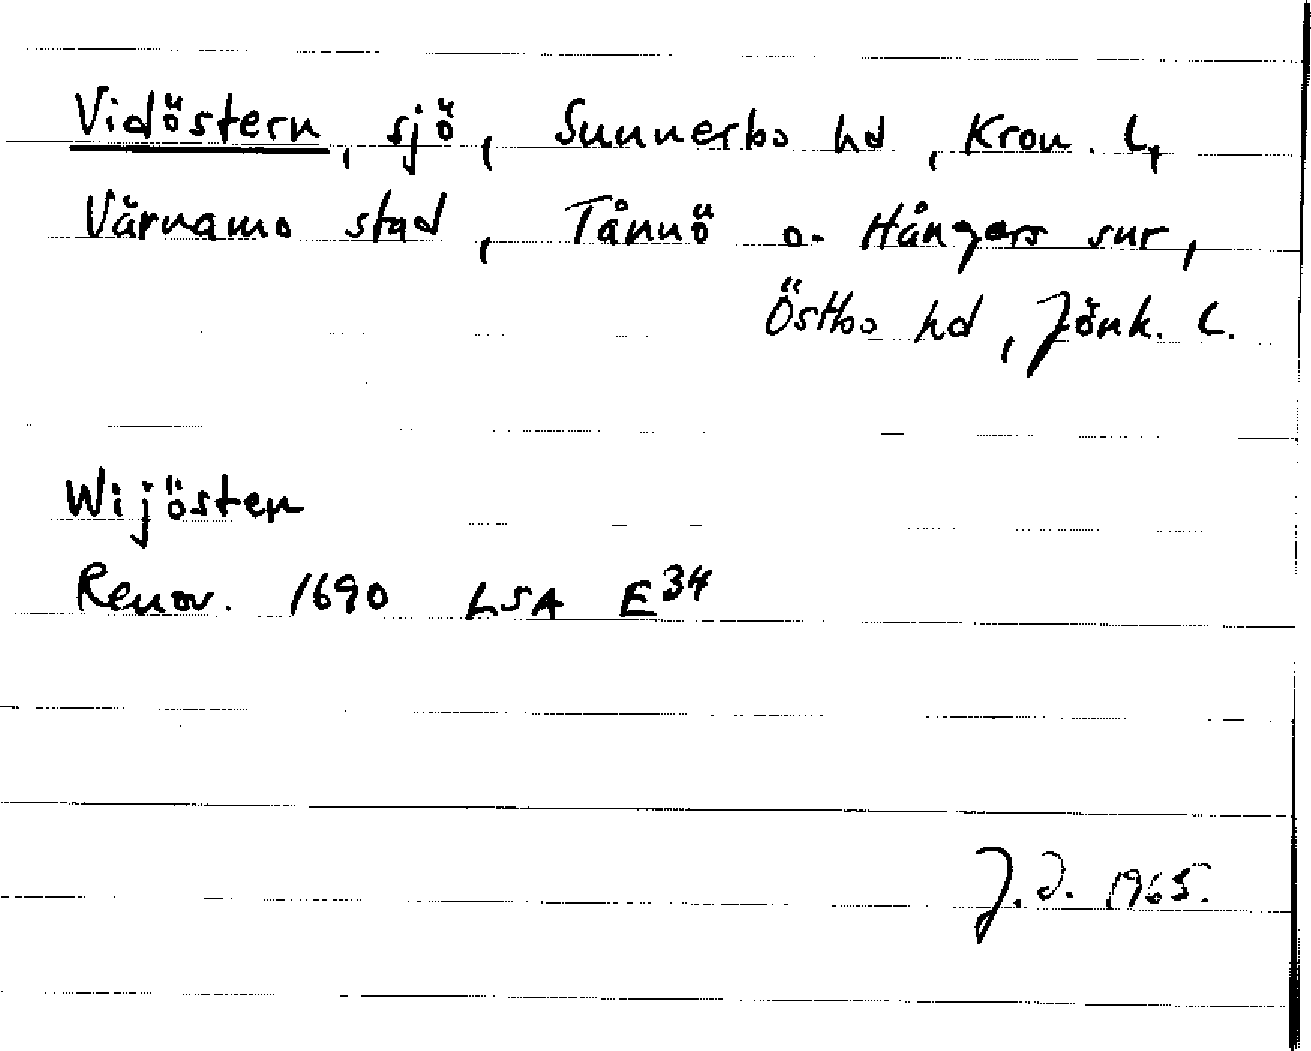 Vidöstern, sjö, Sunnerbo hd, Kron. l,
Värnamo stad, Tånnö o. Hångers snr,
Östbo hd, Jönk. l.
Wijösten
Renov. 1690 LSA E34
J.D. 1965.